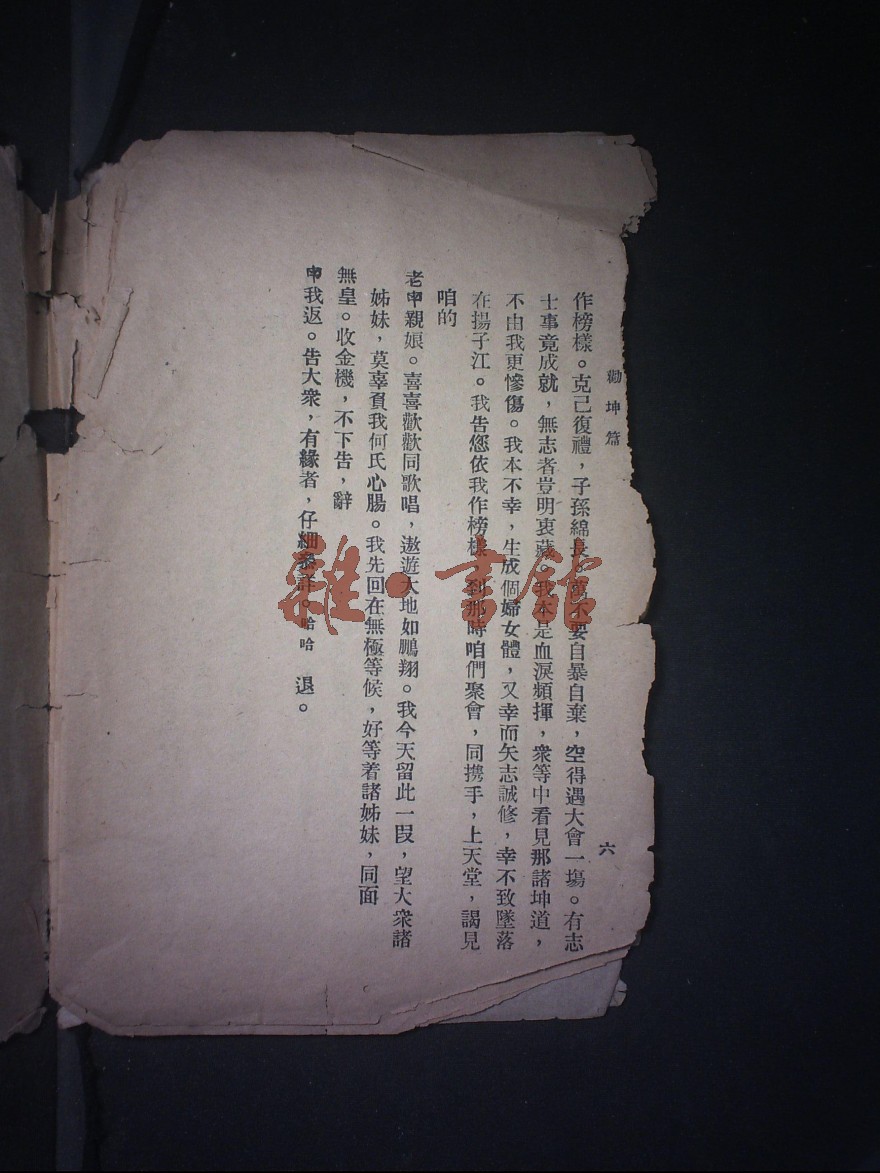 勸坤篇
六
作榜樣。克己復禮，子孫綿長。萬不要自暴自棄，空得遇大會一塲。有志
士事竟成就，無志者豈明衷藏。我本是血淚頻揮，衆等中看見那諸坤道，
不由我更慘傷。我本不幸，生成個婦女體，又幸而矢志誠修，幸不致墜落
在揚子江。我告您依我作榜樣，到那時咱們聚會，同携手，上天堂，謁見
咱的
老𢆶親娘。喜喜歡歡同歌唱，遨遊大地如鵬翔。我今天留此一段，望大衆諸
姊妹，莫辜負我何氏心腸。我先回在無極等候，好等着諸姊妹，同面
無皇。收金機，不下告，辭
𢆶我返。告大衆，有緣者，仔細參詳。哈哈 退。
雜·書館